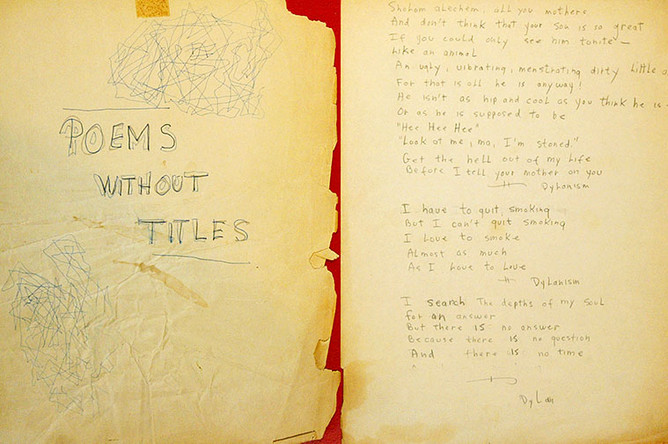 POEMS
WITHOUT
TITLES
Shohom alechem, all you mothers
And don't think that your son is so great
If you could only see him tonite –
Like an animal
An ugly, vibrating, menstrating dirty little
For that is all he is anyway!
He isn't as hip and cool as you think he is
Or as he is supposed to be
"Hee Hee Hee"
"Look at me, ma, I'm stoned."
Get the hell out of my life
Before I tell your mother on you
Dylanism
I have to quit smoking
But I can't quit smoking
I love to smoke
Almost as much
As I have to Love
Dylanism
I search The depths of my soul
for an answer
But there IS no answer
Because there IS no question
And there IS no time
Dylan